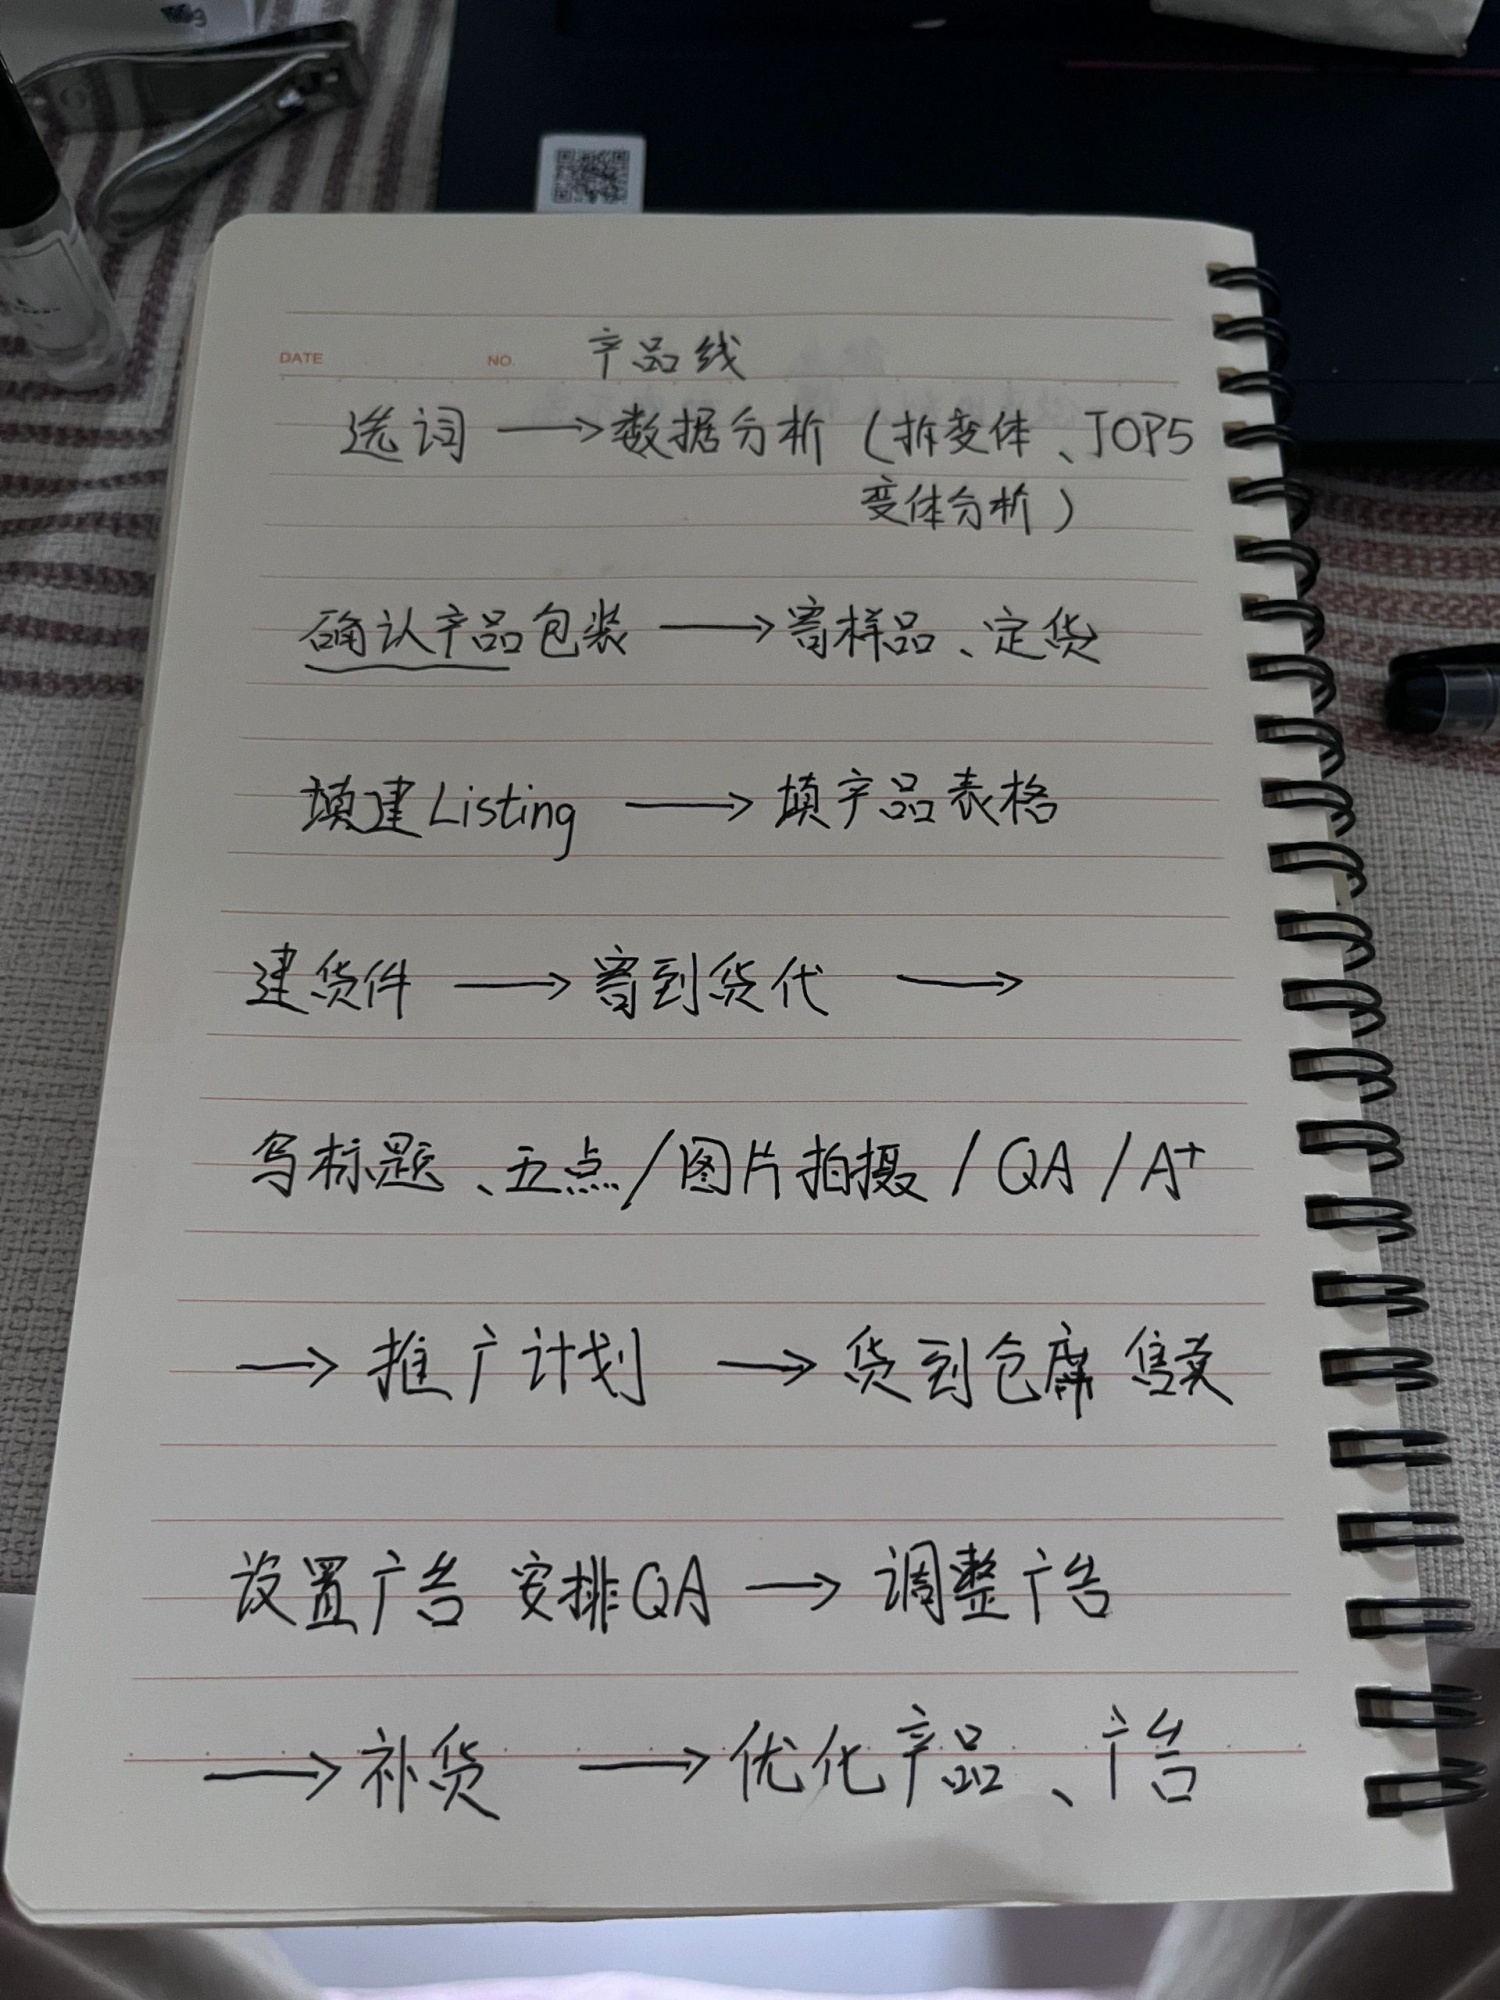 DATE NO. 产品线
选词 → 数据分析（拆变体、TOP5
变体分析）
确认产品包装 → 寄样品、定货
填建Listing → 填产品表格
建货件 → 寄到货代 →
写标题、五点/图片拍摄/QA/A+
→ 推广计划 → 货到仓席 售卖
设置广告 安排QA → 调整广告
→ 补货 → 优化产品、广告